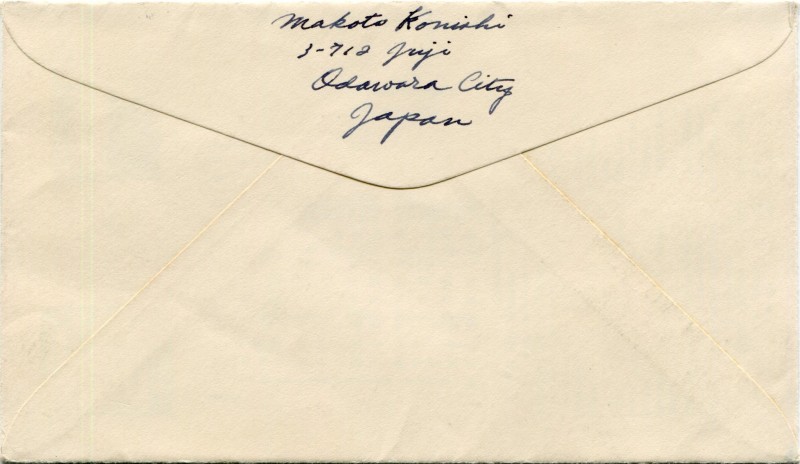 Makoto Konishi
3-718 Juji
Odawara City
Japan